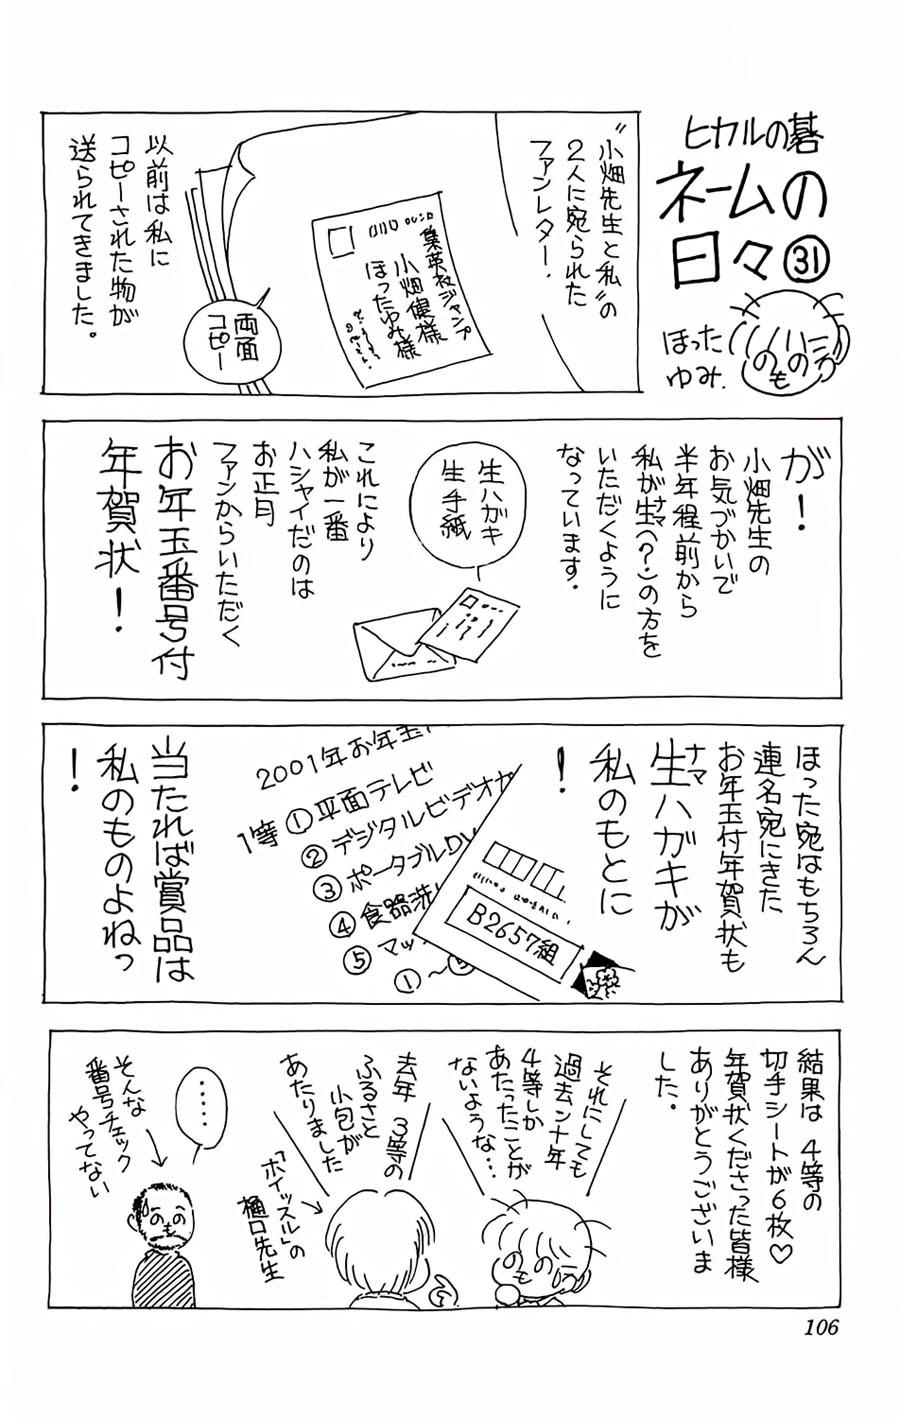 ヒカルの碁
ネームの
日々㉛
ほった
ゆみ.
〝小畑先生と私〟の
2人に宛られた
ファンレター.
集英社ジャンプ
小畑健様
ほったゆみ様
両面
コピー
以前は私に
コピーされた物が
送られてきました。
が!
小畑先生の
お気づかいで
半年程前から
私が生(?)の方を
ナマ
いただくように
なっています.
生ハガキ
生手紙
これにより
私が一番
ハシャイだのは
お正月
ファンからいただく
お年玉番号付
年賀状!
ほった宛はもちろん
連名宛にきた
お年玉付年賀状も
生ハガキが
ナマ
私のもとに
!
2001年お年玉
1等①平面テレビ
②デジタルビデオカ
③ポータブルDV
④食器洗
⑤マッ
①～⑤
B2657組
当たれば賞品は
私のものよねっ
!
結果は 4等の
切手シートが6枚♡
年賀状くださった皆様
ありがとうございま
した.
それにしても
過去ン十年
4等しか
あたったことが
ないような…
去年 3等の
ふるさと
小包が
あたりました
「ホイッスル」の
樋口先生
・・・・・
そんな
番号チェック
やってない
106